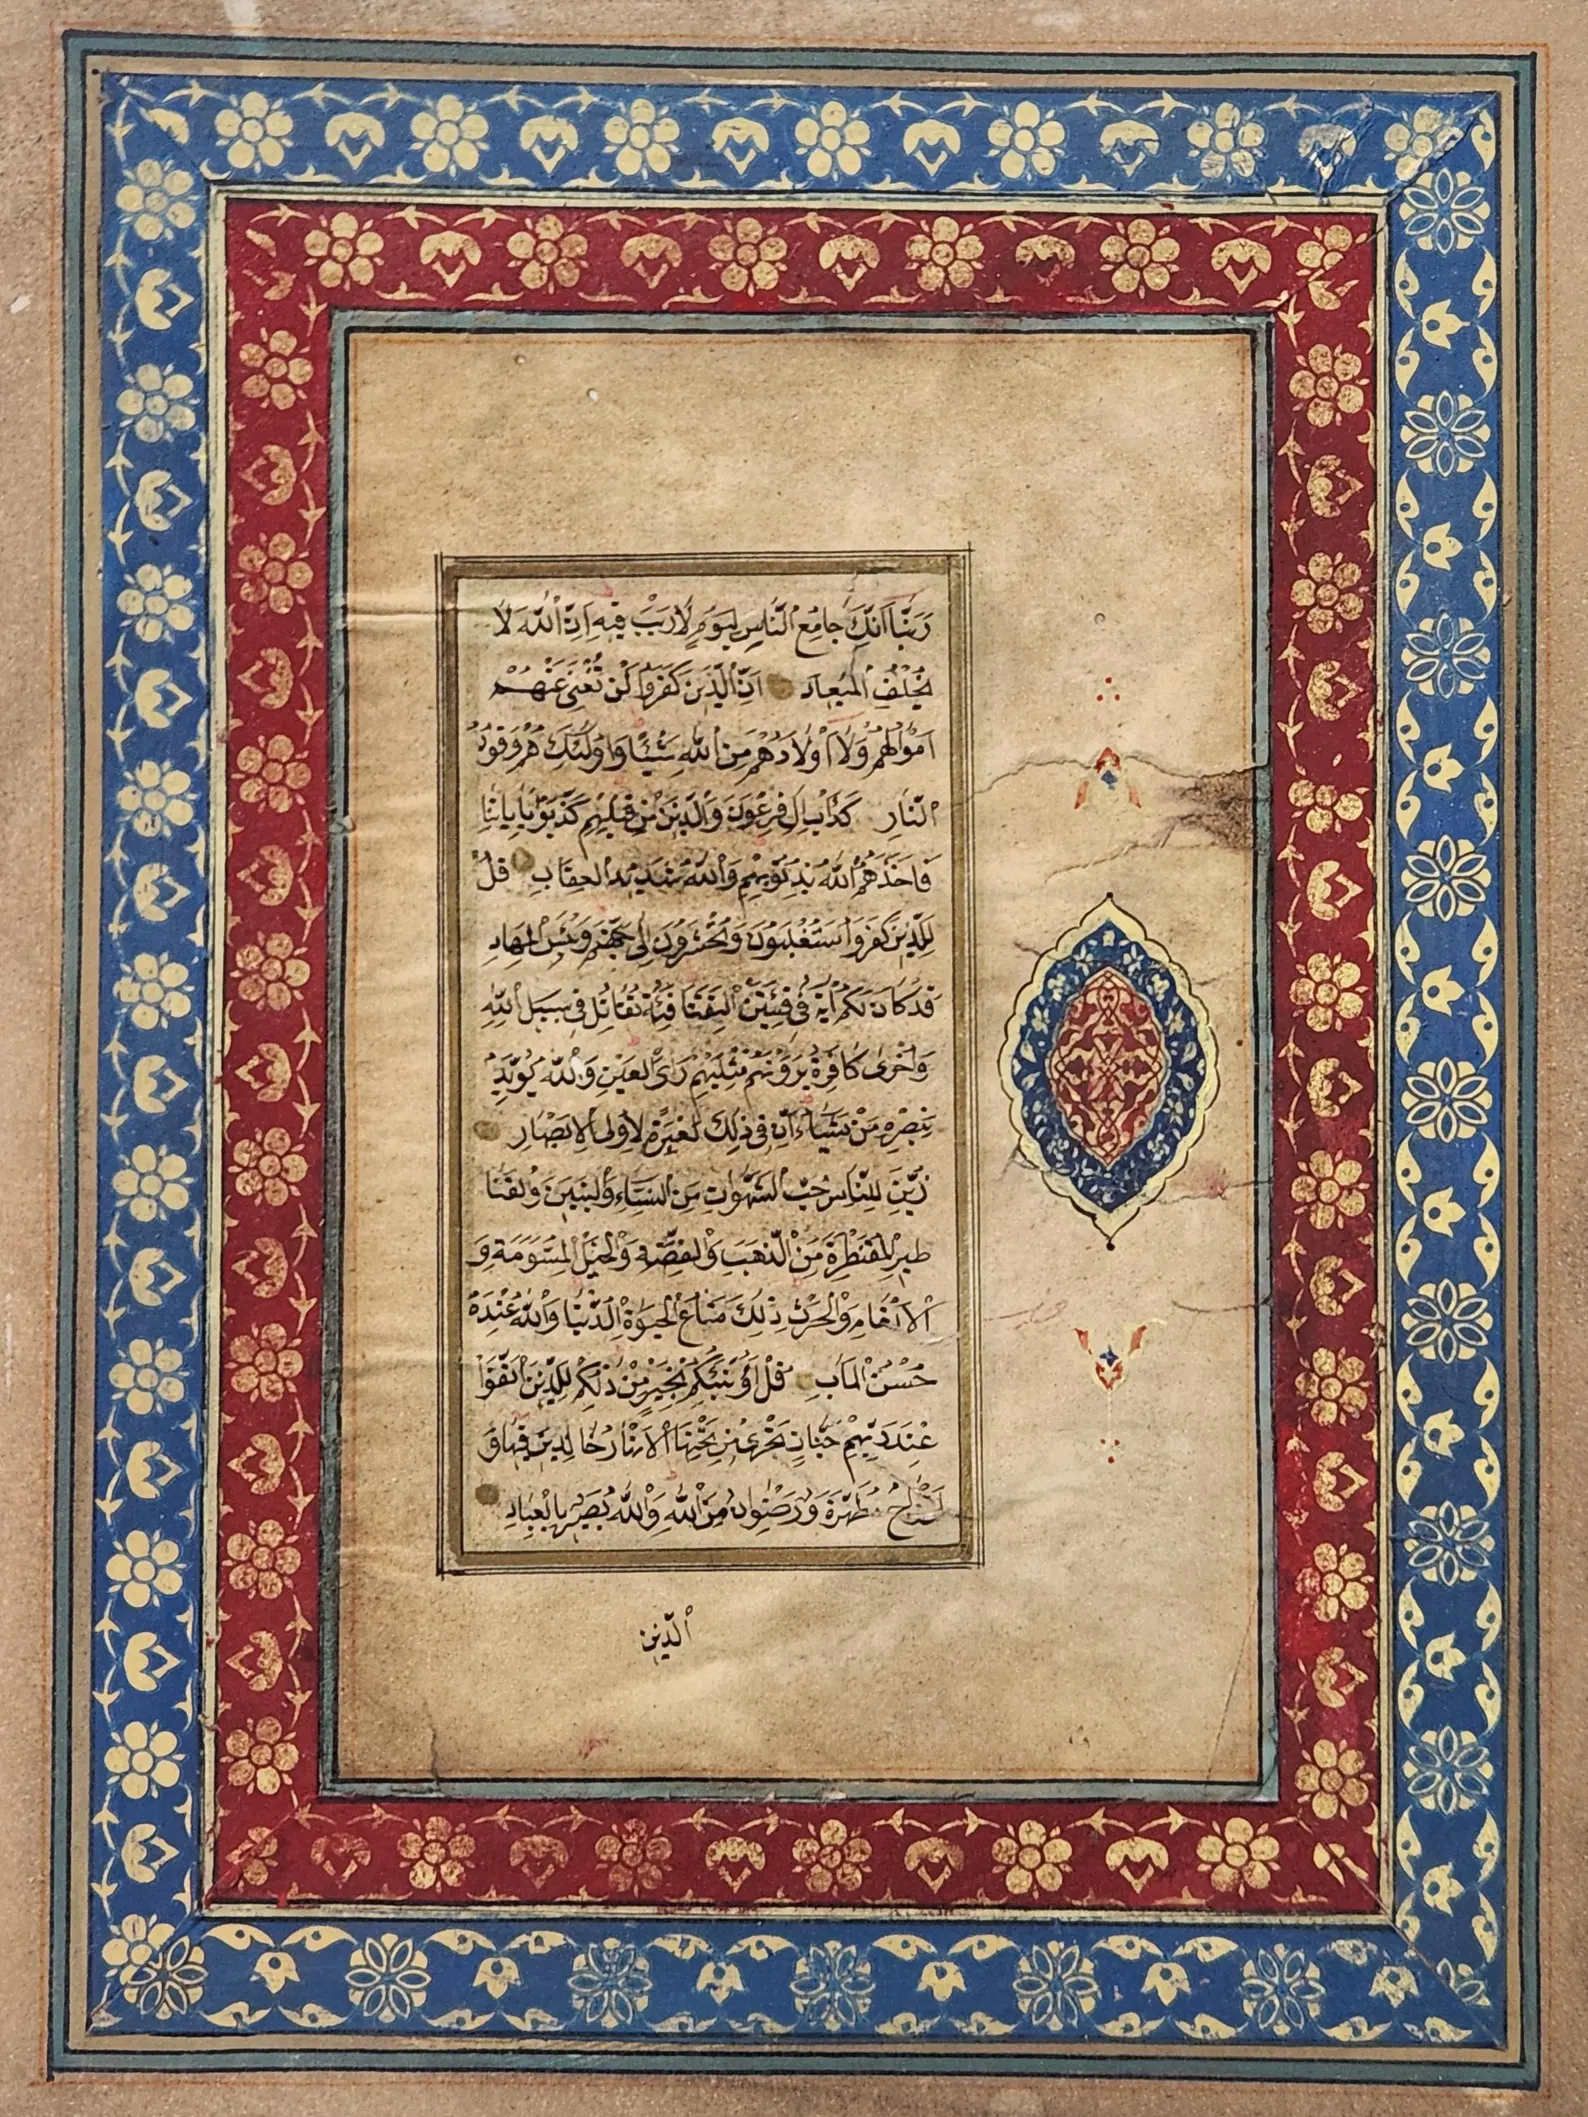 رَبَّنَا اِنَّكَ جَامِعُ النَّاسِ لِيَوْمٍ لَا رَيْبَ فِيهِ اِنَّ اللّٰهَ لَا
يُخْلِفُ الْمِيعَادَ اِنَّ الَّذِينَ كَفَرُوا لَنْ تُغْنِيَ عَنْهُمْ
اَمْوَالُهُمْ وَلَا اَوْلَادُهُمْ مِنَ اللّٰهِ شَيْئًا وَاُولٰئِكَ هُمْ وَقُودُ
النَّارِ كَدَأْبِ اٰلِ فِرْعَوْنَ وَالَّذِينَ مِنْ قَبْلِهِمْ كَذَّبُوا بِاٰيَاتِنَا
فَاَخَذَهُمُ اللّٰهُ بِذُنُوبِهِمْ وَاللّٰهُ شَدِيدُ الْعِقَابِ قُلْ
لِلَّذِينَ كَفَرُوا سَتُغْلَبُونَ وَتُحْشَرُونَ اِلٰى جَهَنَّمَ وَبِئْسَ الْمِهَادُ
قَدْ كَانَ لَكُمْ اٰيَةٌ فِي فِئَتَيْنِ الْتَقَتَا فِئَةٌ تُقَاتِلُ فِي سَبِيلِ اللّٰهِ
وَاُخْرٰى كَافِرَةٌ يَرَوْنَهُمْ مِثْلَيْهِمْ رَأْيَ الْعَيْنِ وَاللّٰهُ يُؤَيِّدُ
بِنَصْرِهِ مَنْ يَشَاءُ اِنَّ فِي ذٰلِكَ لَعِبْرَةً لِاُولِي الْاَبْصَارِ
زُيِّنَ لِلنَّاسِ حُبُّ الشَّهَوَاتِ مِنَ النِّسَاءِ وَالْبَنِينَ وَالْقَنَا
طِيرِ الْمُقَنْطَرَةِ مِنَ الذَّهَبِ وَالْفِضَّةِ وَالْخَيْلِ الْمُسَوَّمَةِ وَ
الْاَنْعَامِ وَالْحَرْثِ ذٰلِكَ مَتَاعُ الْحَيٰوةِ الدُّنْيَا وَاللّٰهُ عِنْدَهُ
حُسْنُ الْمَاٰبِ قُلْ اَؤُنَبِّئُكُمْ بِخَيْرٍ مِنْ ذٰلِكُمْ لِلَّذِينَ اتَّقَوْا
عِنْدَ رَبِّهِمْ جَنَّاتٌ تَجْرِي مِنْ تَحْتِهَا الْاَنْهَارُ خَالِدِينَ فِيهَا وَ
اَزْوَاجٌ مُطَهَّرَةٌ وَرِضْوَانٌ مِنَ اللّٰهِ وَاللّٰهُ بَصِيرٌ بِالْعِبَادِ
الَّذِينَ